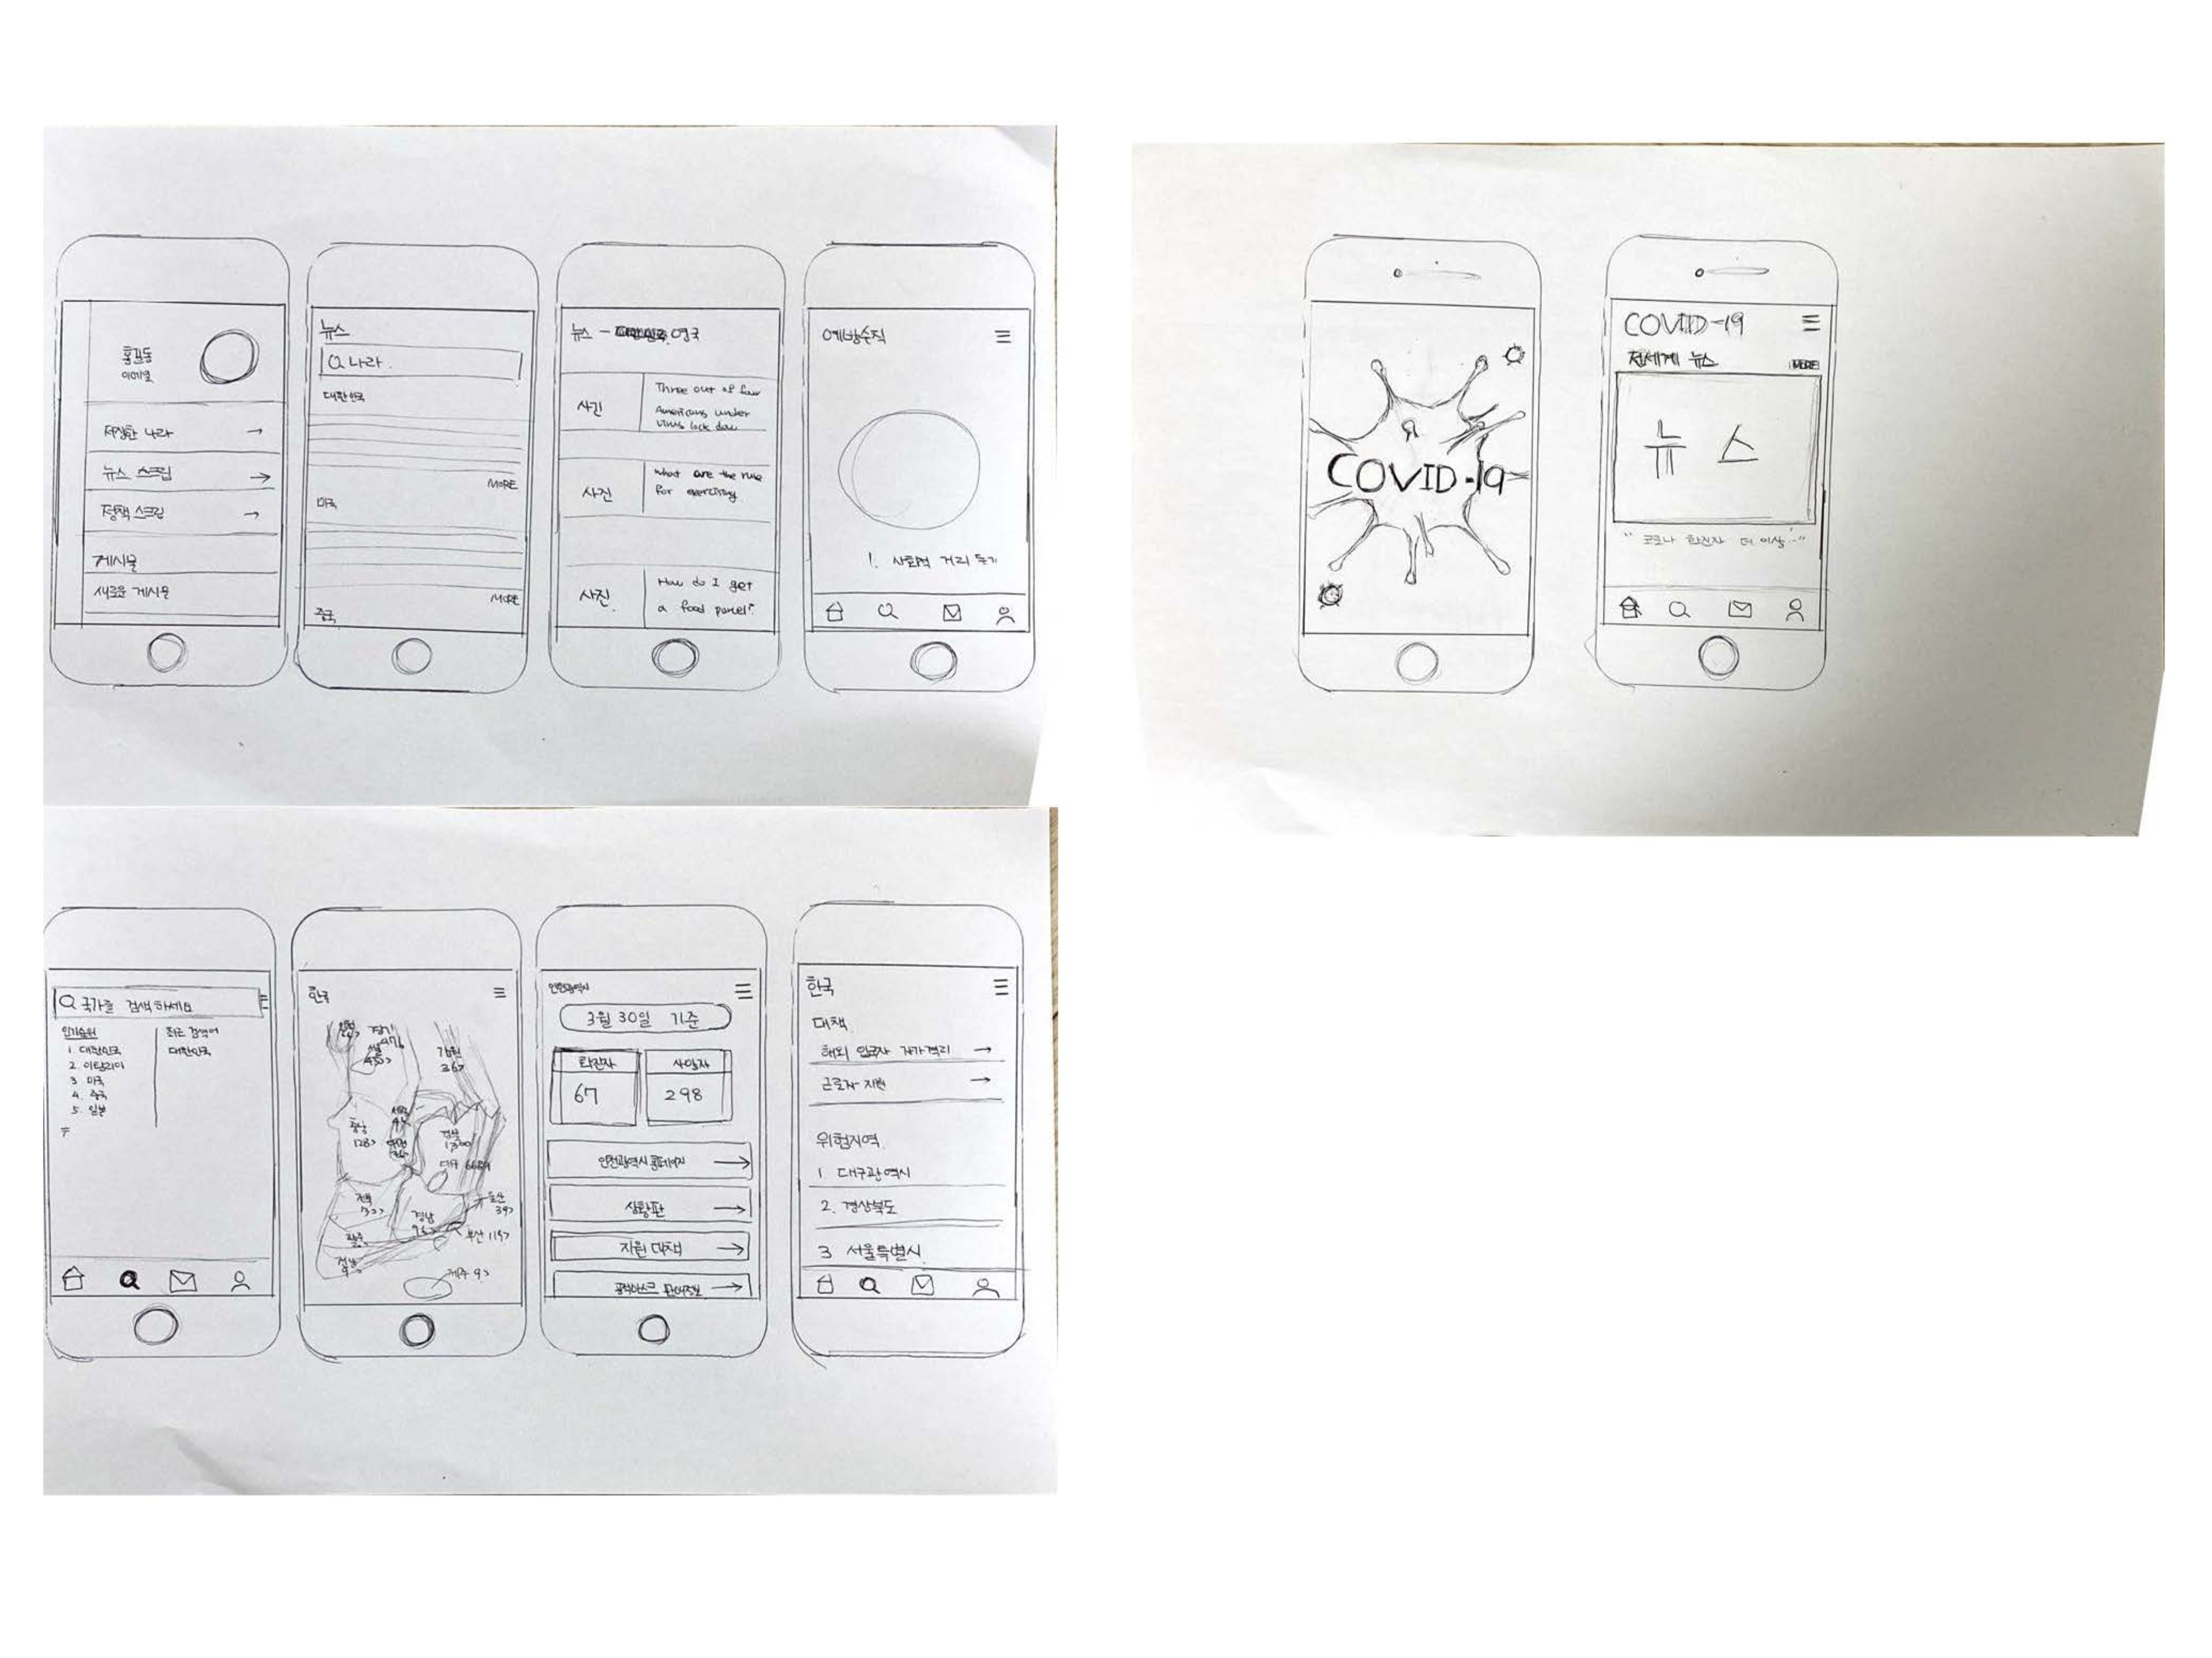 홍길동
이메일
저장한 나라
뉴스 스크랩
정책 스크랩
게시물
새로운 게시물
뉴스
나라
대한민국
MORE
미국
MORE
중국
뉴스 - 영국
사진
Three out of four
Americans under
virus lock down
사진
what are the rule
for exercising
사진
How do I get
a food parcel?
예방수칙
1. 사회적 거리 두기
COVID-19
COVID-19
전세계 뉴스
MORE
뉴스
"코로나 확진자 더 이상..."
국가를 검색하세요
인기순위
1. 대한민국
2. 이탈리아
3. 미국
4. 중국
5. 일본
최근 검색어
대한민국
한국
인천
경기
476
서울
강원
36>
세종
충남
128>
경북
대구
전북
경남
울산
39>
부산 119>
전남
제주 9>
인천광역시
3월 30일 기준
확진자
67
사망자
298
인천광역시 홈페이지
상황판
지원 대책
공적마스크 판매정보
한국
대책
해외 입국자 자가격리
근로자 지원
위험지역
1 대구광역시
2. 경상북도
3 서울특별시